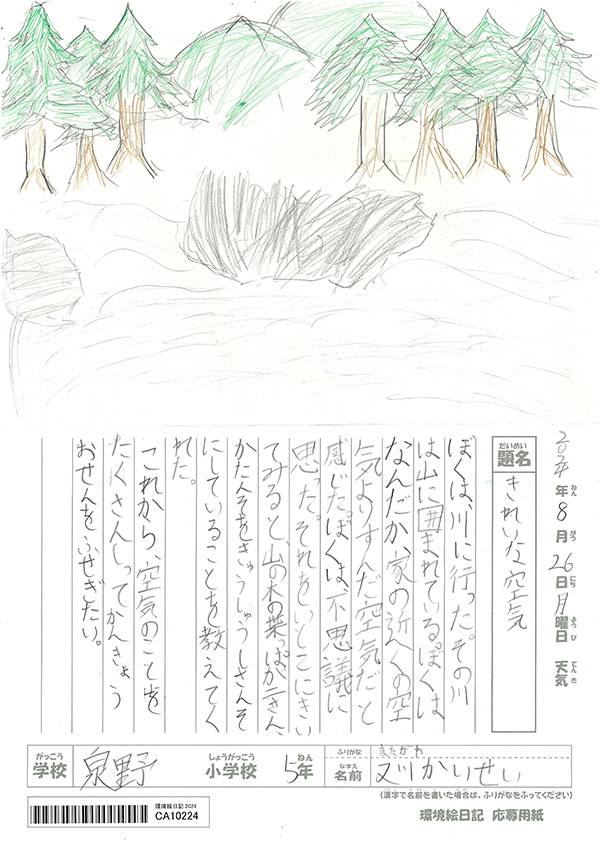 2024年8月26日月曜日 天気
ねん がつ にち ようび てんき
だいめい
題名 きれいな空気
ぼくは、川に行った。その川
は山に囲まれている。ぼくは
なんだか、家の近くの空
気よりすんだ空気だと
感じた。ぼくは、不思議に
思った。それをいとこにきい
てみると、山の木の葉っぱが二さん
かたんそをきゅうしゅうしさんそ
にしていることを教えてく
れた。
これから、空気のことを
たくさんしってかんきょう
おせんをふせぎたい。
がっこう しょうがっこう ねん ふりがな きたがわ
学校 泉野 小学校 5年
なまえ
名前 川かいせい
(漢字で名前を書いた場合は、ふりがなをふってください)
環境絵日記 2024
CA10224
環境絵日記 応募用紙